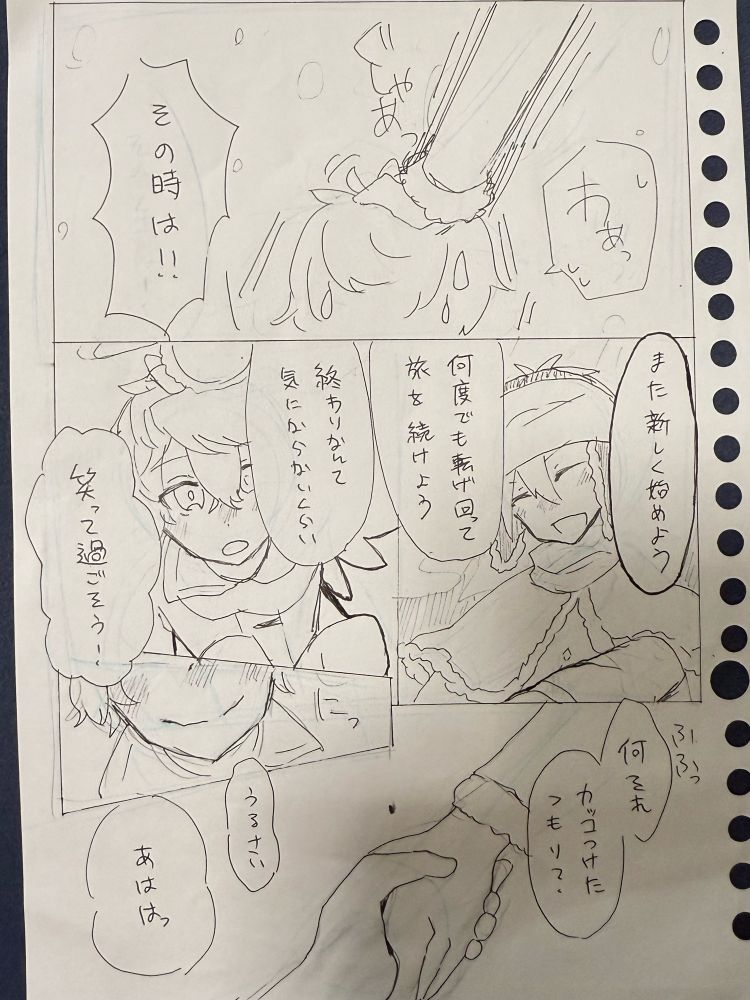 わあっ
ぐしゃあっ
その時は!!
また新しく始めよう
何度でも転げ回って
旅を続けよう
終わりなんて
気にからかいくらい
笑って過ごそう!
にっ
ふふっ
何それ
カッコつけた
つもり?
うるさい
あははっ